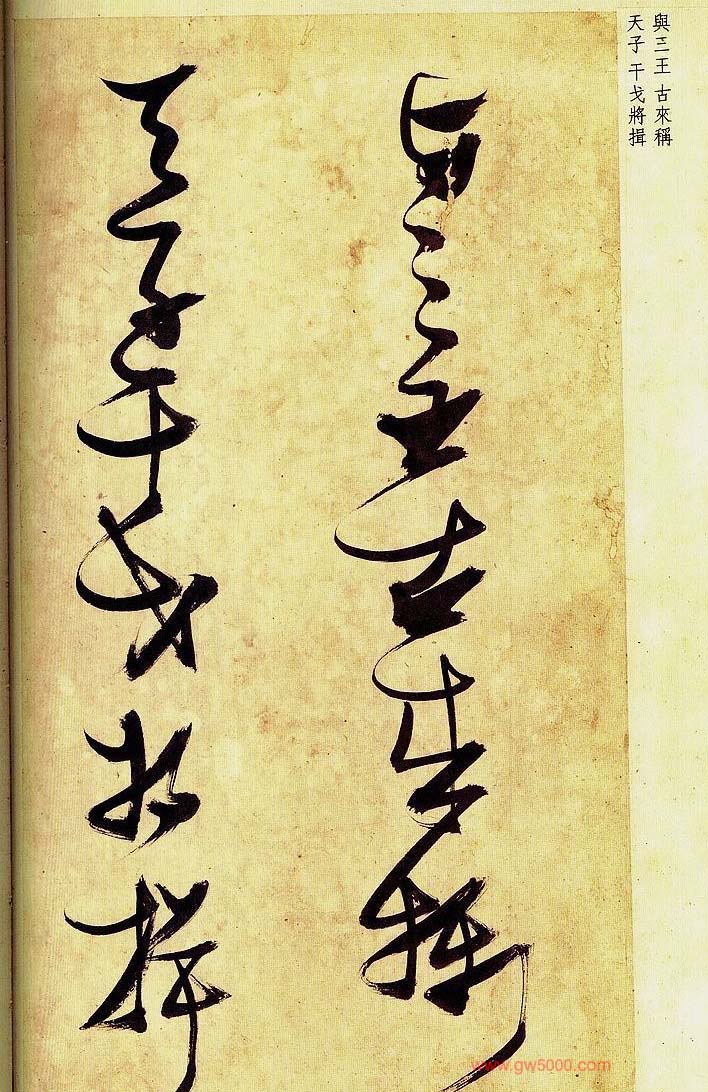 與三王 古來稱
天子 干戈將揖
與三王古來稱
天子干戈將揖
www.gw5000.com